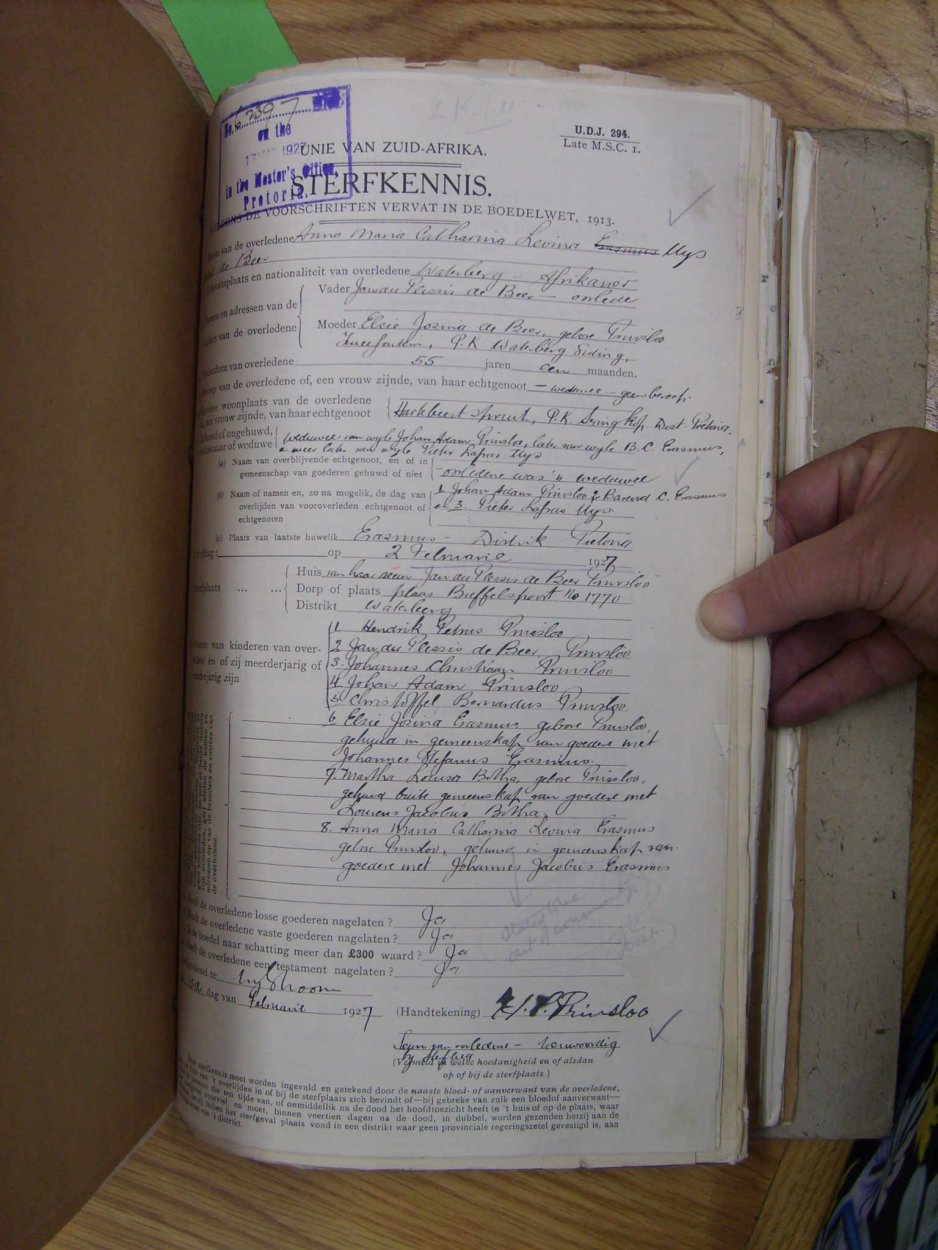 No. 6230/7
on the
1927
in the Master's Office,
Pretoria.
U.D.J. 294.
Late M.S.C. 1.
UNIE VAN ZUID-AFRIKA.
STERFKENNIS.
DE VOORSCHRIFTEN VERVAT IN DE BOEDELWET, 1913.
van de overledene Anna Maria Catharina Levina Erasmus Uys
de Beer
en nationaliteit van overledene Waterberg – Afrikaner
Vader Jan du Plessis de Beer – oorlede
en adressen van de
van de overledene
Moeder Elsie Josina de Beer, gebore Prinsloo
P.K. Waterberg Siding,
van overledene 55 jaren een maanden.
van de overledene of, een vrouw zijnde, van haar echtgenoot – weduwee – geen beroep.
woonplaats van de overledene
vrouw zijnde, van haar echtgenoot
Hartebeestspruit, P.K. Dist. Pretoria.
of ongehuwd,
of weduwe
weduwee van wyle Johan Adam Prinsloo, later van wyle B.C. Erasmus,
later van wyle Pieter Lafras Uys
(a) Naam van overblijvende echtgenoot, en of in
gemeenschap van goederen gehuwd of niet
– oorledene was 'n weduwee
(b) Naam of namen en, zo na mogelik, de dag van
overlijden van vooroverleden echtgenoot of
echtgenoten
1. Johan Adam Prinsloo 2. Barend C. Erasmus
3. Pieter Lafras Uys
(c) Plaats van laatste huwelik Erasmus – Distrik Pretoria
op 2 Februarie 1927
Huis van haar seun Jan du Plessis de Beer Prinsloo
Dorp of plaats plaas Buffelspoort No 1770
Distrikt Waterberg
van kinderen van over-
en of zij meerderjarig of
zijn
1 Hendrik Petrus Prinsloo
2 Jan du Plessis de Beer Prinsloo
3. Johannes Christiaan Prinsloo
4 Johan Adam Prinsloo
5 Christoffel Bernardus Prinsloo
6 Elsie Josina Erasmus gebore Prinsloo,
gehuud in gemeenskap van goedere met
Johannes Stefanus Erasmus.
7. Martha Louisa Botha, gebore Prinsloo,
gehuud buite gemeenskap van goedere met
Lourens Jacobus Botha.
8. Anna Maria Catharina Levina Erasmus
gebore Prinsloo, gehuud in gemeenskap van
goedere met Johannes Jacobus Erasmus
de overledene losse goederen nagelaten? Ja
de overledene vaste goederen nagelaten? Ja
boedel naar schatting meer dan £300 waard? Ja
de overledene een testament nagelaten? Ja
te Nylstroom
dag van Februarie 1927
(Handtekening) H. P. Prinsloo
Seun van oorledene – teenwoordig
by sterfbed
(Vermeld in welke hoedanigheid en of alsdan
op of bij de sterfplaats.)
sterfkennis moet worden ingevuld en getekend door de naaste bloed- of aanverwant van de overledene,
't overlijden in of bij de sterfplaats zich bevindt of—bij gebreke van zulk een bloedof aanverwant—
persoon die ten tijde van, of onmiddellik na de dood het hoofdtoezicht heeft in 't huis of op de plaats, waar
moet, binnen veertien dagen na de dood, in dubbel, worden gezonden hetzij aan de
indien het sterfgeval plaats vond in een distrikt waar geen provinciale regeringszetel gevestigd is, aan
van 't distrikt.